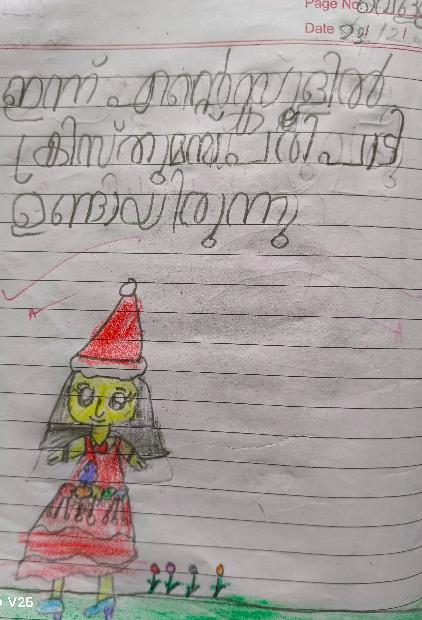 Page No
Date 23/12/
ഇന്ന് എന്റെ സ്കൂളിൽ
ക്രിസ്തുമസ് പരിപാടി
ഉണ്ടായിരുന്നു
V25